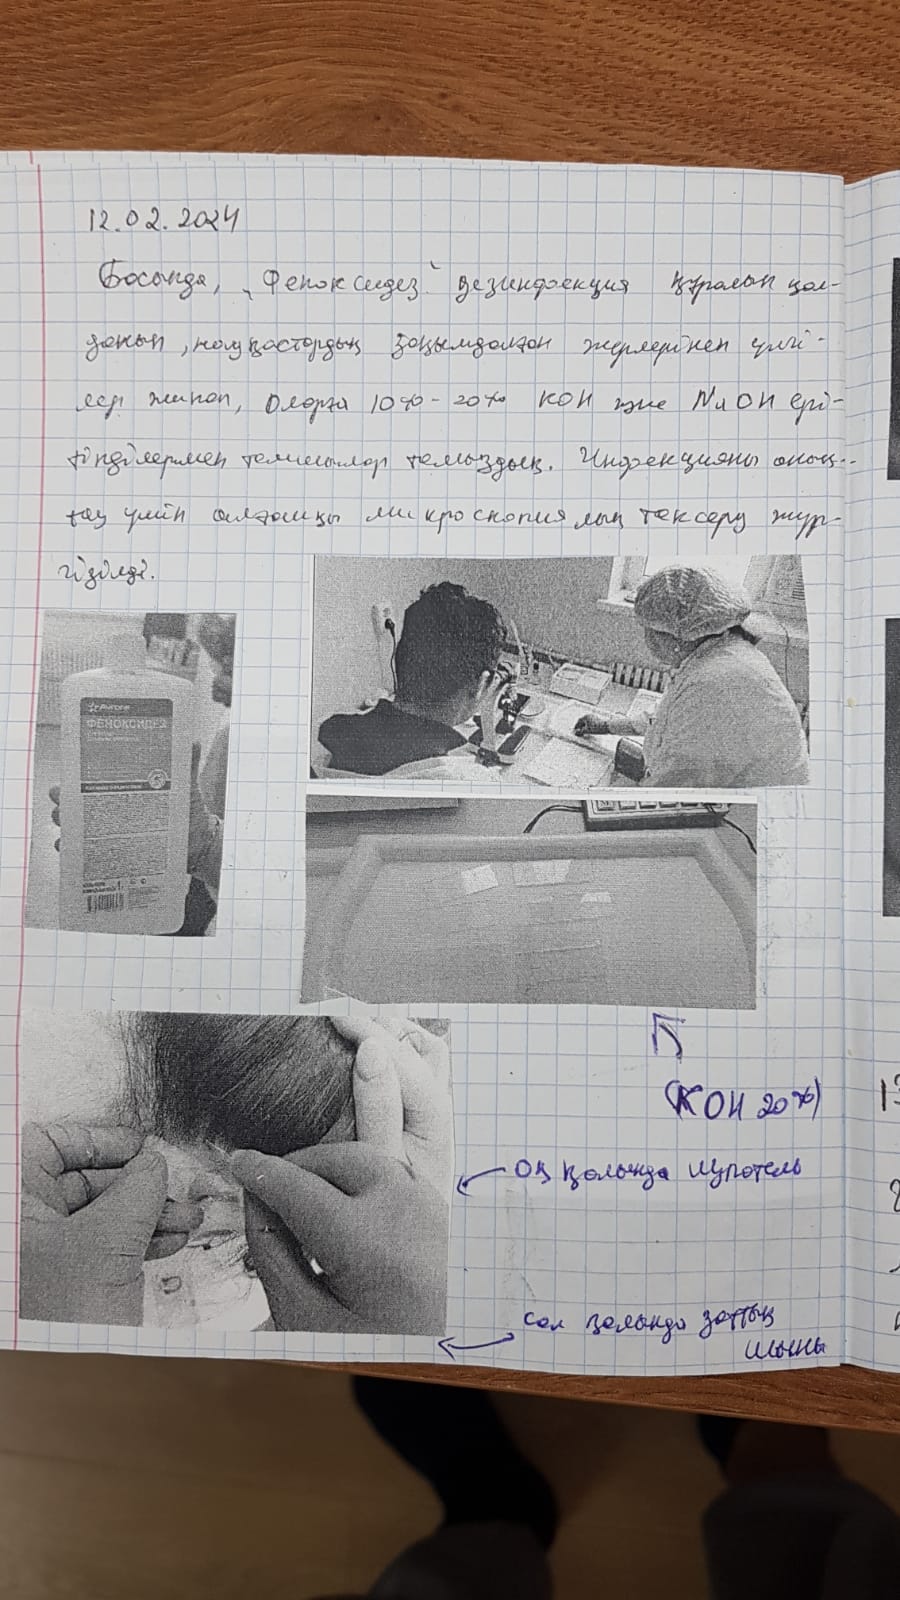 12.02.2024
Босында, "Феноксидез" дезинфекция құралын қол-
данып, науқастардың зақымдалған жерлерінен үлгі-
лер жинап, оларға 10%-20% KOH және NaOH ері-
тінділермен тамшылар тамыздық. Инфекцияны анық-
тау үшін алғашқы микроскопиялық тексеру жүр-
гізілді.
Avrora
ФЕНОКСИДЕЗ
(KOH 20%)
Оң қолында шпатель
Сол қолында заттық
шыны